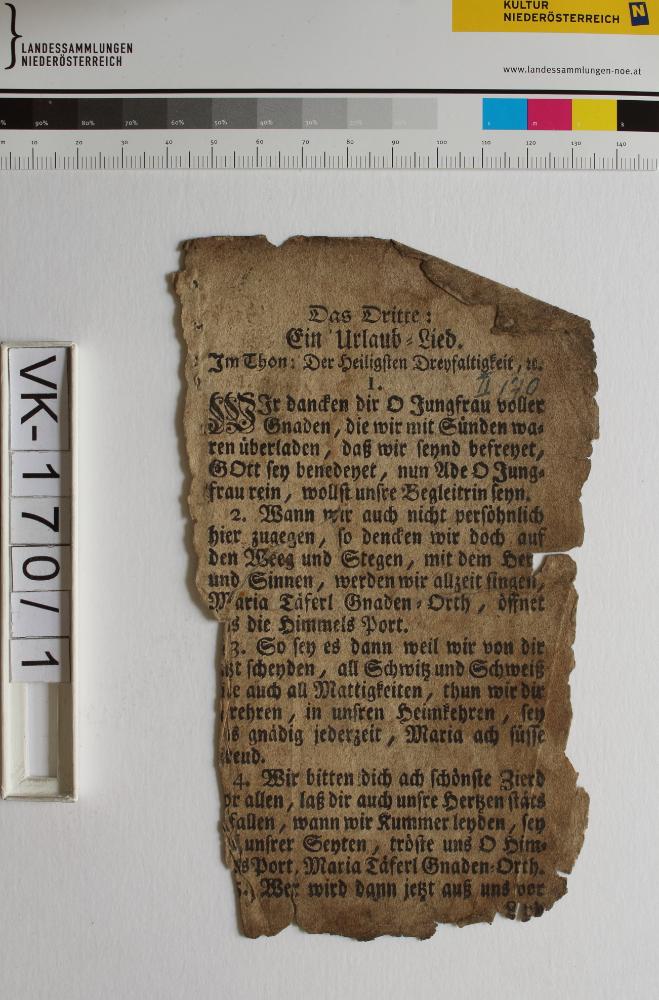 LANDESSAMMLUNGEN
NIEDERÖSTERREICH
KULTUR
NIEDERÖSTERREICH
N
www.landessammlungen-noe.at
90% 80% 70% 60% 50% 40% 30% 20% 10% c m y k
10 20 30 40 50 60 70 80 90 100 110 120 130 140
VK-170/1
Das Dritte:
Ein Urlaub-Lied.
Im Thon: Der Heiligsten Dreyfaltigkeit, ꝛc.
II 130
1.
WIr dancken dir O Jungfrau voller
Gnaden, die wir mit Sünden wa-
ren überladen, daß wir seynd befreyet,
GOtt sey benedeyet, nun Ade O Jung-
frau rein, wollst unsre Begleitrin seyn.
2. Wann wir auch nicht persöhnlich
hier zugegen, so dencken wir doch auf
den Weeg und Stegen, mit dem
und Sinnen, werden wir allzeit singen,
Maria Täferl Gnaden-Orth, öffnet
die Himmels Port.
3. So sey es dann weil wir von dir
scheyden, all Schwitz und Schweiß
auch all Mattigkeiten, thun wir dir
in unsren Heimkehren, sey
gnädig jederzeit, Maria ach süsse
4. Wir bitten dich ach schönste Zierd
allen, laß dir auch unsre Hertzen stäts
fallen, wann wir Kummer leyden, sey
unsrer Seyten, tröste uns O Him-
Port, Maria Täferl Gnaden-Orth.
5. Wer wird dann jetzt auß uns vor